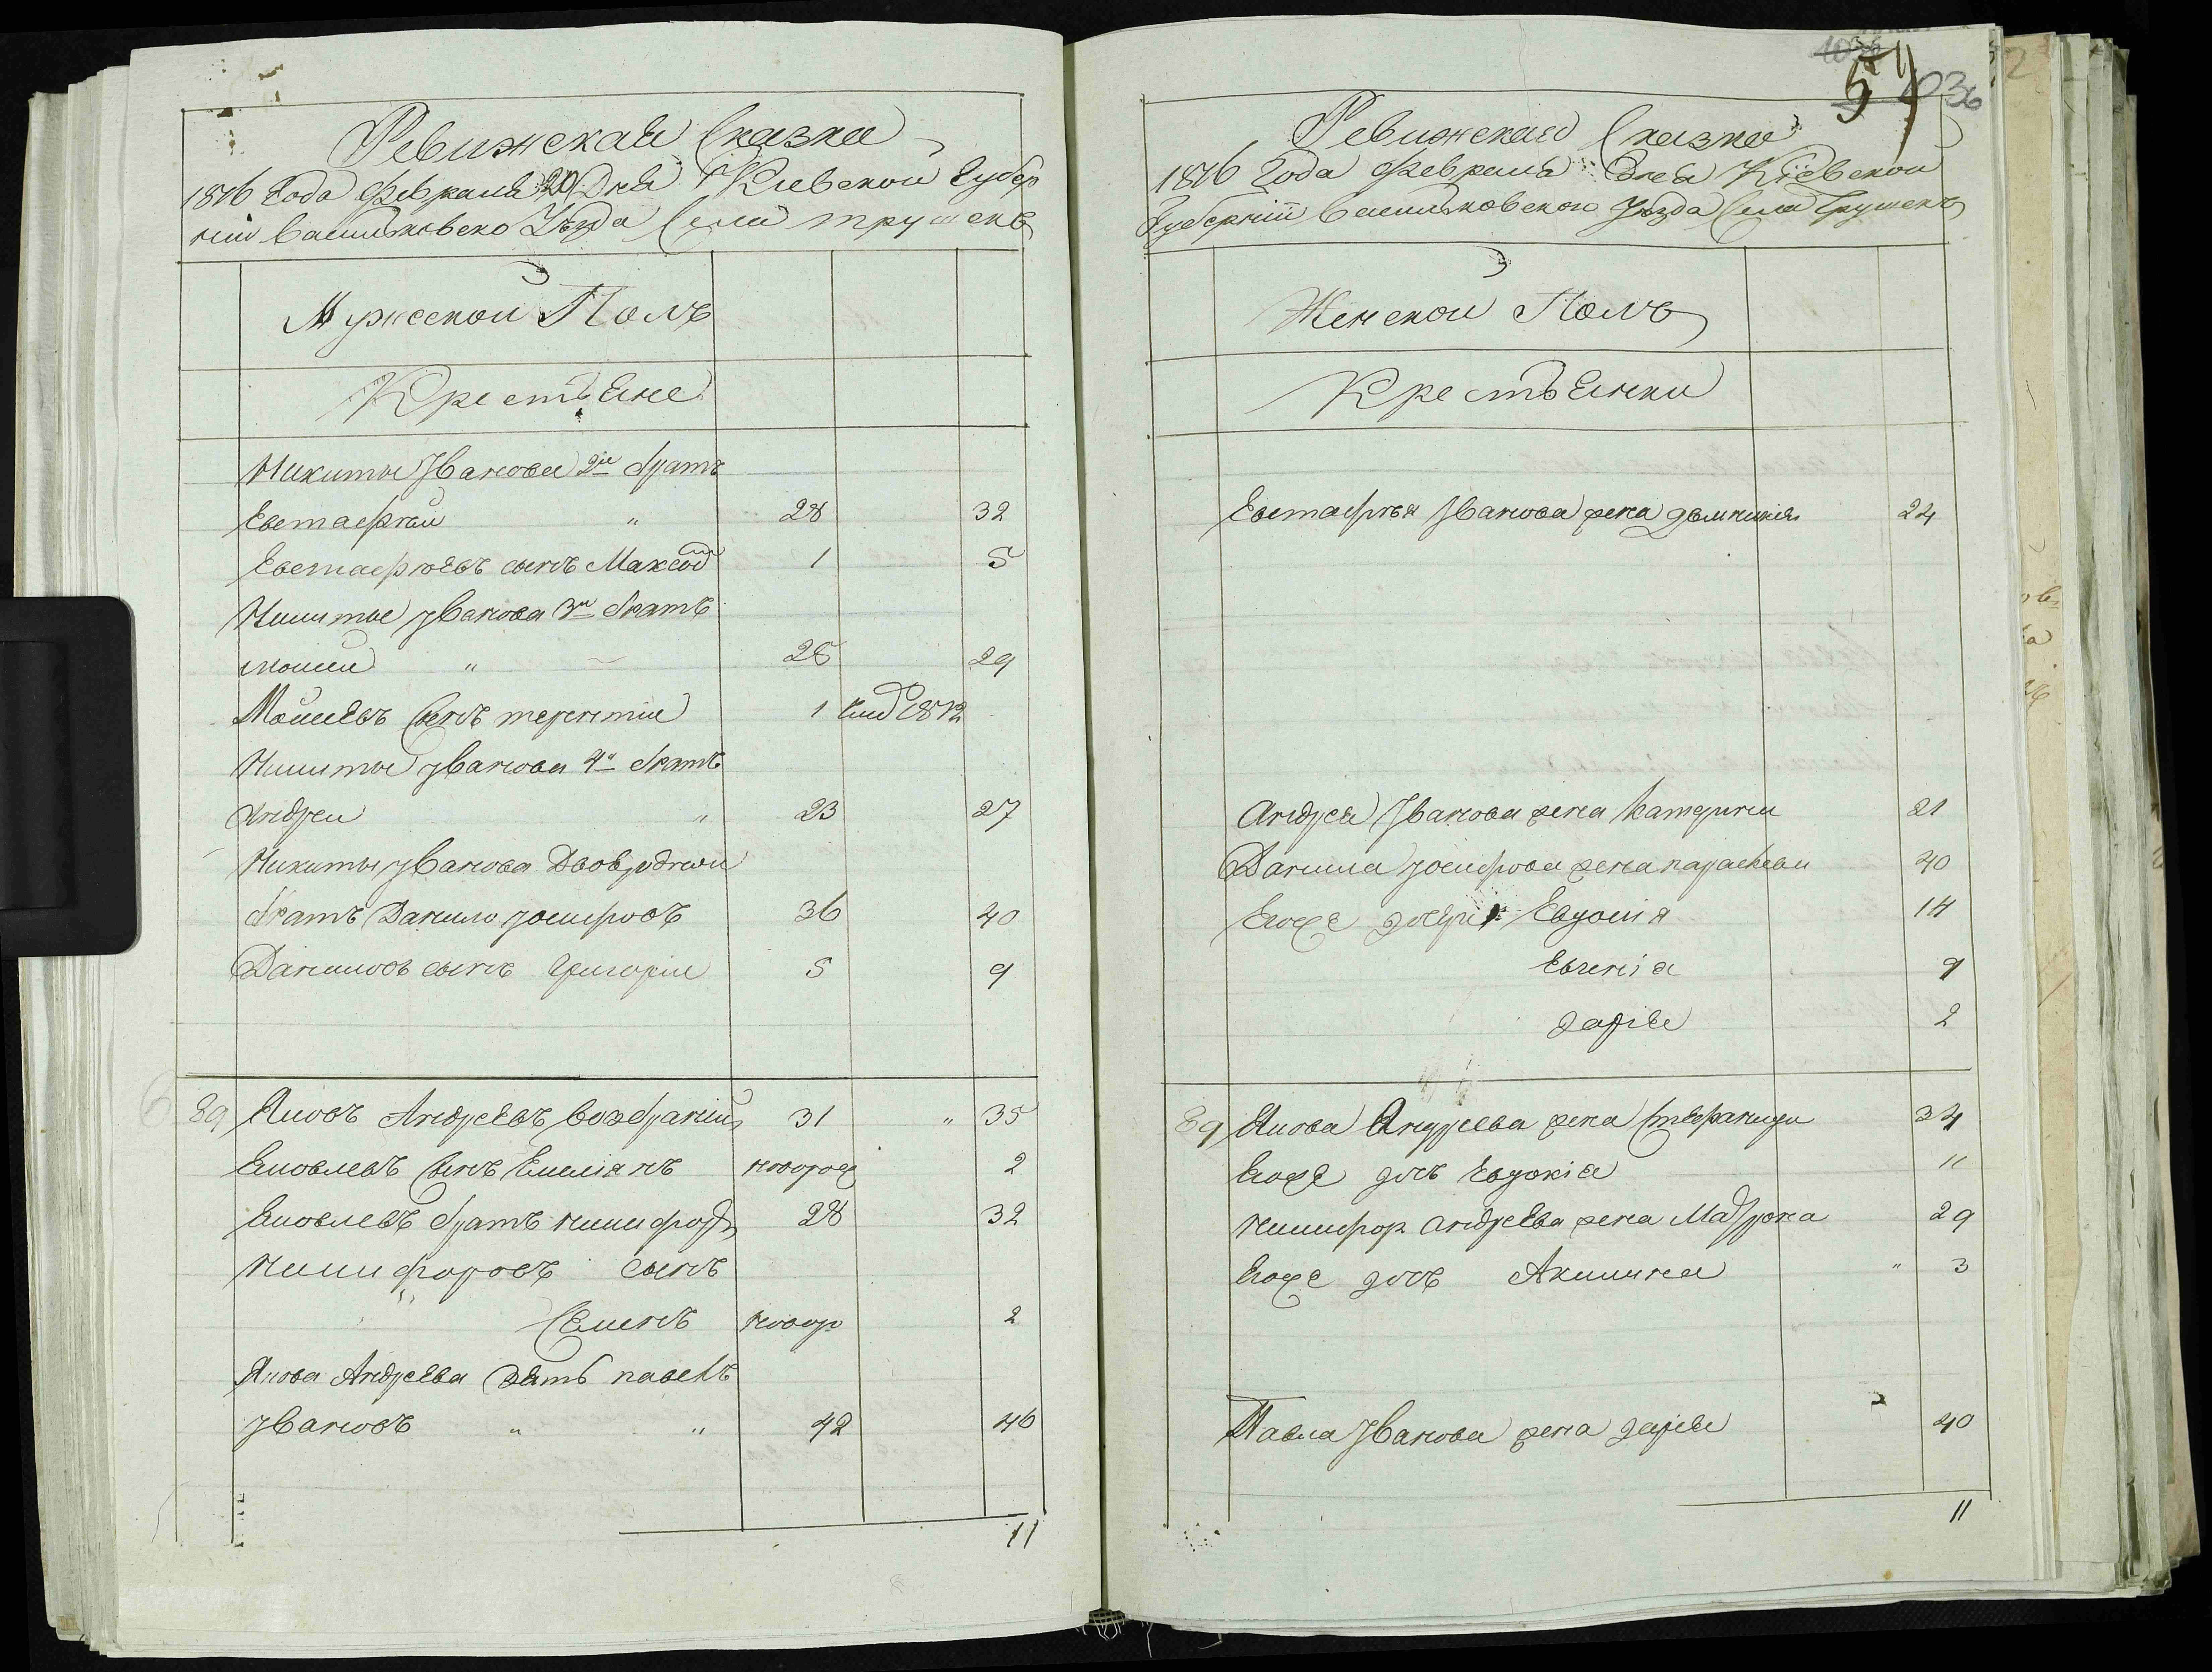 Ревижская Сказка
1816 Года Февраля 20 Дня Киевской Губер
нии Васильковско Уезда Села трушекъ
Мужеской Полъ
Крестъяне
Никиты Иванова 2й братъ
Евстафiй " 28 32
Евстафiевъ сынъ Максимъ 1 5
Никиты Иванова 3й братъ
моисей " 25 29
Моисеевъ сынъ терентiй 1 1812
Никиты Иванова 4й братъ
Андрей " 23 27
Никиты Иванова Двоюродной
братъ Данило Иосифовъ 36 40
Даниловъ сынъ Григорiй 5 9
89 Яковъ Андреевъ 31 " 35
Яковлевъ сынъ Емелiянъ новорож 2
Яковлевъ братъ никифоръ 28 32
Никифоровъ сынъ
Семенъ новор 2
Якова Андреева зять павелъ
Ивановъ " " 42 46
11
1036
54
1036
Ревижская Сказка
1816 Года Февраля Дня Кiевской
Губернiи Васильковского Уезда Села Трушекъ
Женской Полъ
Крестъянки
Евстафiя Иванова жена 24
Андрея Иванова жена Катерина 21
Данила Иосифова жена параскева 40
Егоже дочери Евдокiя 14
Евгенiя 9
дарiя 2
89 Якова Андреева жена Стефанида 34
Егоже дочь Евдокiя 11
никифор андреева жена Матрона 29
Егоже дочь Акилина " 3
Павла Иванова жена дарiя 40
11